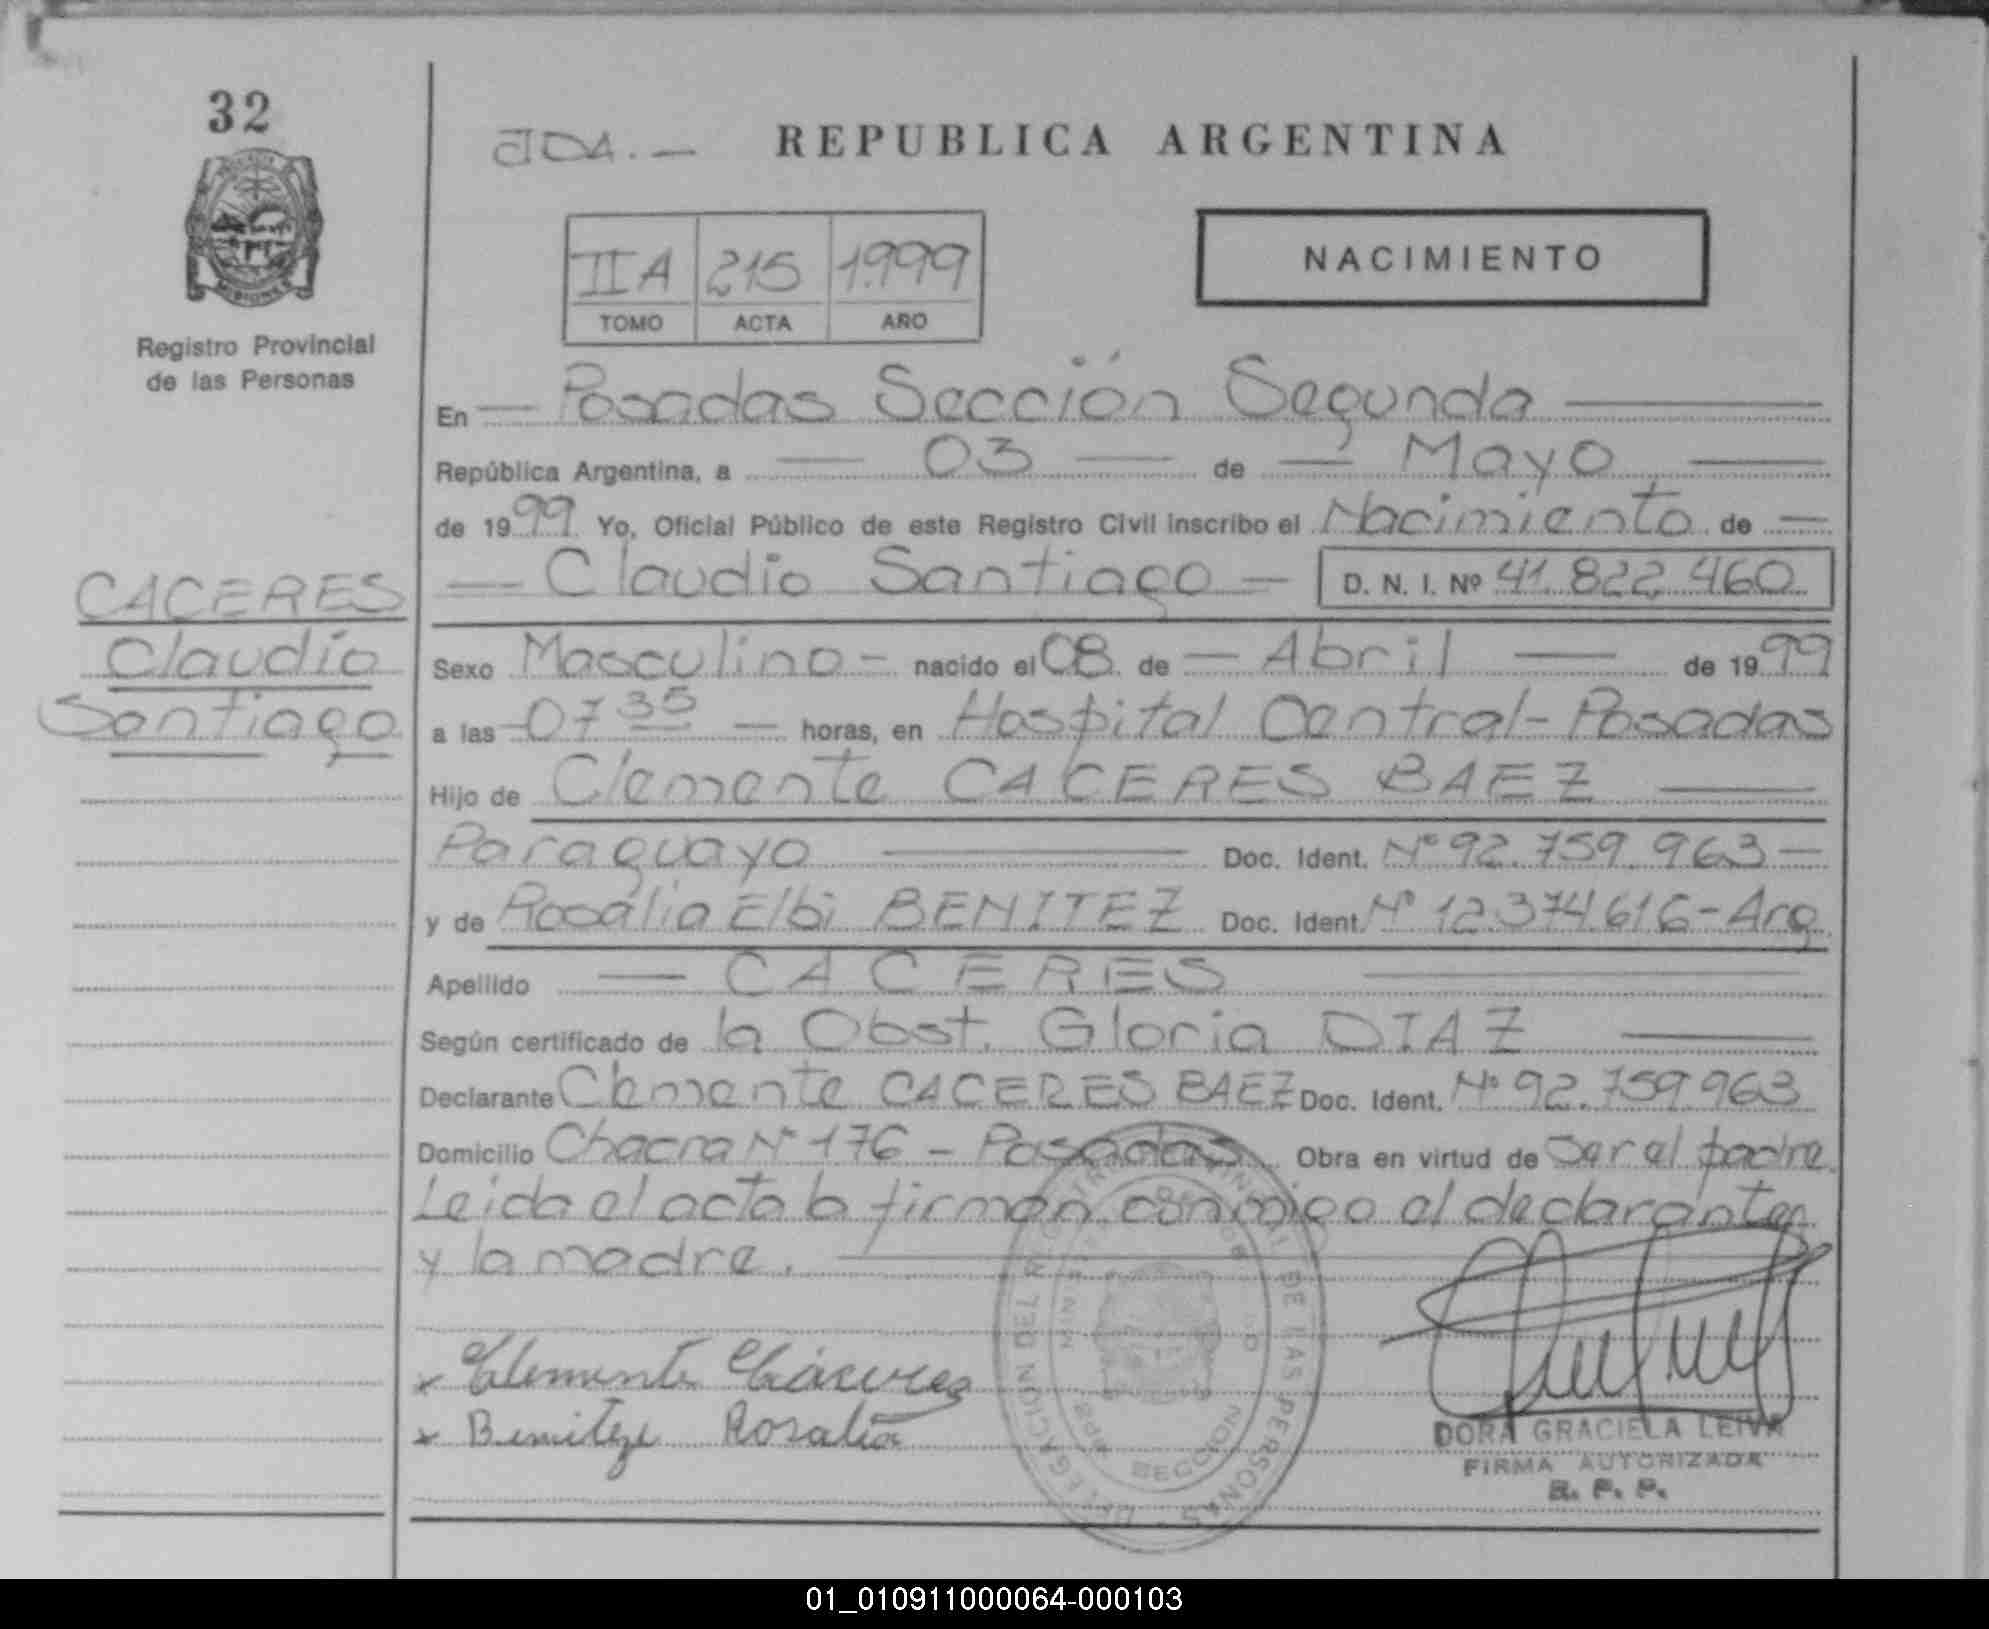 32
MISIONES
Registro Provincial
de las Personas
REPUBLICA ARGENTINA
IIA 215 1.999
TOMO ACTA AÑO
NACIMIENTO
En — Posadas Sección Segunda —
República Argentina, a — 03 — de — Mayo —
de 1999 Yo, Oficial Público de este Registro Civil inscribo el Nacimiento de —
— Claudio Santiago — D. N. I. Nº 41.822.460
CACERES
Claudio
Santiago
Sexo Masculino - nacido el 08 de — Abril — de 1999
a las - 07 35 — horas, en Hospital Central - Posadas
Hijo de Clemente CACERES BAEZ —
Paraguayo — Doc. Ident. Nº 92.759.963 —
y de Rosalia Elbi BENITEZ Doc. Ident. Nº 12.374.616 - Arg.
Apellido — CACERES —
Según certificado de la Obst. Gloria DIAZ —
Declarante Clemente CACERES BAEZ Doc. Ident. Nº 92.759.963
Domicilio Chacra Nº 176 - Posadas Obra en virtud de ser el padre.
Leida el acta la firman conmigo el declarante
y la madre. —
x Clemente Cáceres
x Benitez Rosalia
DELEGACION DEL REGISTRO PROVINCIAL DE LAS PERSONAS
DORA GRACIELA LEIVA
FIRMA AUTORIZADA
R. P. P.
01_010911000064-000103